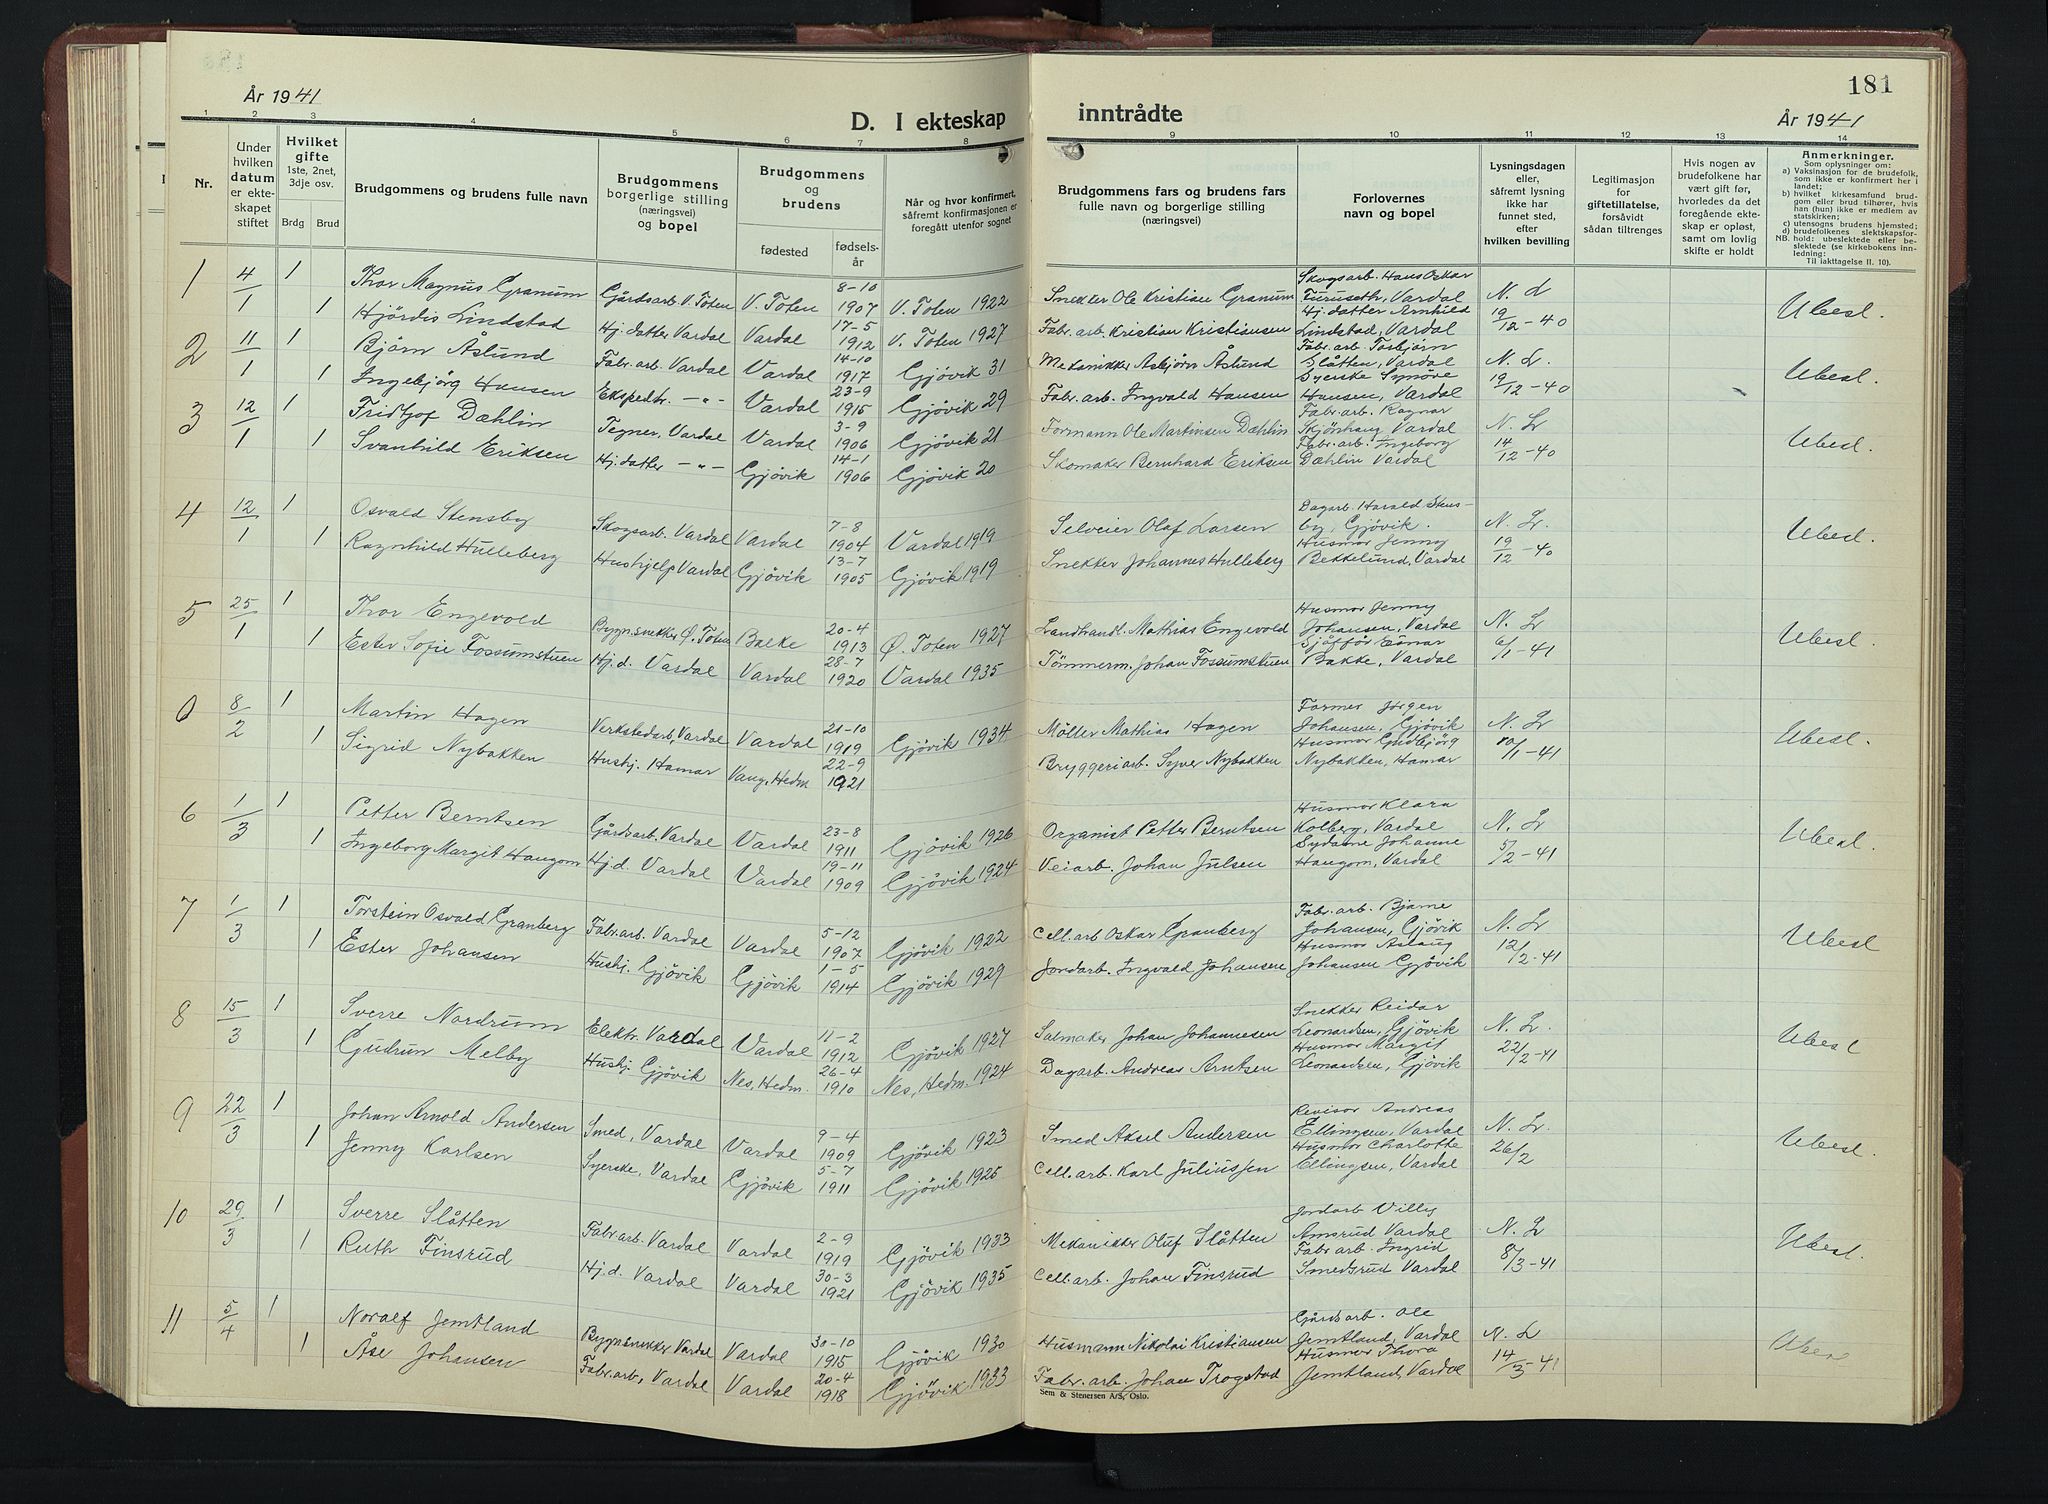 181
År 1941
D. I ekteskap inntrådte
År 1941
1 2 3 4 5 6 7 8 9 10 11 12 13 14
Nr.
Under hvilken datum er ekteskapet stiftet
Hvilket gifte 1ste, 2net, 3dje osv.
Brdg Brud
Brudgommens og brudens fulle navn
Brudgommens borgerlige stilling (næringsvei) og bopel
Brudgommens og brudens
fødested
fødselsår
Når og hvor konfirmert, såfremt konfirmasjonen er foregått utenfor sognet
Brudgommens fars og brudens fars fulle navn og borgerlige stilling (næringsvei)
Forlovernes navn og bopel
Lysningsdagen eller, såfremt lysning ikke har funnet sted, efter hvilken bevilling
Legitimasjon for giftetillatelse, forsåvidt sådan tiltrenges
Hvis nogen av brudefolkene har vært gift før, hvorledes da det foregående ekteskap er opløst, samt om lovlig skifte er holdt
Anmerkninger.
Som oplysninger om:
a) Vaksinasjon for de brudefolk, som ikke er konfirmert her i landet;
b) hvilket kirkesamfund brudgom eller brud tilhører, hvis han (hun) ikke er medlem av statskirken;
c) utensogns brudens hjemsted;
d) brudefolkenes slektskapsforhold: ubeslektede eller beslektede (se kirkebokens innledning:
NB.
Til iakttagelse II. 10).
1 4/1 1 Thor Magnus Granum Gårdsarb. V. Toten V. Toten 8-10 1907 V. Toten 1922 Snekker Ole Kristian Granum Skogsarb. Hans Oskar Furuseth, Vardal N. L Ubesl.
1 Hjördis Lindstad Hj. datter Vardal Vardal 17-5 1912 V. Toten 1927 Fabr. arb. Kristian Kristiansen Hj. datter Arnhild Lindstad, Vardal 19/12-40
2 11/1 1 Bjørn Åslund Fabr. arb. Vardal Vardal 14-10 1917 Gjövik 31 Mekanikker Asbjørn Åslund Fabr. arb. Torbjørn Slåtten, Vardal N. L. Ubesl.
1 Ingebjørg Hansen Ekspedtr. -"- Vardal 23-9 1915 Gjövik 29 Fabr. arb. Ingvald Hansen Syerske Synöve Hansen, Vardal 19/12-40
3 12/1 1 Fridtjof Dæhlin Tegner, Vardal Vardal 3-9 1906 Gjövik 21 Formann Ole Martinsen Dæhlin Fabr. arb. Ragnar Skjönhaug Vardal N. L Ubesl.
1 Svanhild Eriksen Hj. datter -"- Gjövik 14-1 1906 Gjövik 20 Skomaker Bernhard Eriksen Fabr. arb. Ingeborg Dæhlin Vardal 14/12-40
4 12/1 1 Osvald Stensby Skogsarb. Vardal Vardal 7-8 1904 Vardal 1919 Selveier Olaf Larsen Dagarb. Harald Stensby, Gjövik. N. L. Ubesl.
1 Ragnhild Hulleberg Hushjelp Vardal Gjövik 13-7 1905 Gjövik 1919 Snekker Johannes Hulleberg Husmor Jenny Bekkelund, Vardal 19/12-40
5 25/1 1 Thor Engevold Bygn.snekker Ø. Toten Balke 20-4 1913 Ø. Toten 1927 Landhandl. Mathias Engevold Husmor Jenny Johansen, Vardal N. L Ubesl.
1 Ester Sofie Fossumstuen Hj. d. Vardal Vardal 28-7 1920 Vardal 1935 Tömmerm. Johan Fossumstuen Sjåfför Einar Bakke, Vardal 6/1-41
0 8/2 1 Martin Hagen Verkstedarb, Vardal Vardal 21-10 1919 Gjövik 1934 Möller Mathias Hagen Farmer Jørgen Johansen, Gjövik N. L Ubesl.
1 Sigrid Nybakken Hushj. Hamar Vang, Hedm 22-9 1921 Bryggeriarb. Syver Nybakken Husmor Gudbjörg Nybakken, Hamar /1-41
6 1/3 1 Petter Berntsen Gårdsarb. Vardal Vardal 23-8 1911 Gjövik 1926 Organist Petter Berntsen Husmor Klara Kolberg, Vardal N. L Ubesl.
1 Ingeborg Margit Haugom Hj. d. Vardal Vardal 19-11 1909 Gjövik 1924 Veiarb. Johan Julsen Sydame Johanne Haugom, Vardal 5/2-41
7 1/3 1 Torstein Osvald Granberg Fabr. arb. Vardal Vardal 5-12 1907 Gjövik 1922 Cell. arb Oskar Granberg Fabr. arb. Bjarne Johansen, Gjövik N. L Ubesl
1 Ester Johansen Hushj. Gjövik Gjövik 1-5 1914 Gjövik 1929 Jordarb. Ingvald Johansen Husmor Aslaug Johansen Gjövik 12/2-41
8 15/3 1 Sverre Nordrum Elektr. Vardal Vardal 11-2 1912 Gjövik 1927 Salmaker Johan Johannesen Snekker Reidar Leonardsen, Gjövik N. L. Ubesl
1 Gudrun Melby Hushj Gjövik Nes, Hedm. 26-4 1910 Nes, Hedm. 1924 Dagarb. Andreas Arntsen Husmor Margit Leonardsen, Gjövik 22/2-41
9 22/3 1 Johan Arnold Andersen Smed, Vardal Vardal 9-4 1909 Gjövik 1923 Smed Aksel Andersen Revisor Andreas Ellingsen, Vardal N. L. Ubesl.
1 Jenny Karlsen Syerske, Vardal Gjövik 5-7 1911 Gjövik 1925 Cell. arb. Karl Juliussen Husmor Charlotte Ellingsen, Vardal 26/2
10 29/3 1 Sverre Slåtten Fabr. arb. Vardal Vardal 2-9 1919 Gjövik 1933 Mekanikker Oluf Slåtten Jordarb Villy Amsrud Vardal N. L Ubesl.
1 Ruth Finsrud Hj. d. Vardal Vardal 30-3 1921 Gjövik 1935 Cell. arb. Johan Finsrud Fabr arb. Ingrid Smedsrud Vardal 8/3-41
11 5/4 1 Noralf Jemtland Bygnsnekker Vardal Vardal 30-10 1915 Gjövik 1930 Husmann Nikolai Kristiansen Gårdsarb. Ole Jemtland, Vardal N. L Ubesl
1 Åse Johansen Fabr. arb, Vardal Vardal 20-4 1918 Gjövik 1933 Fabr. arb. Johan Trogstad Husmor Thora Jemtland, Vardal 14/3-41
Sem & Stenersen A/S, Oslo.